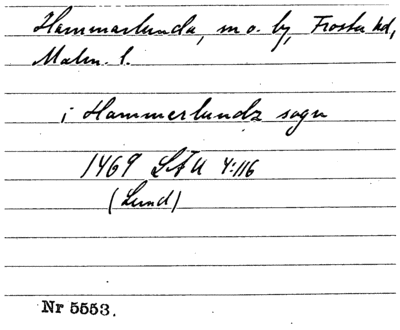 Hammarlunda, sn o. by, Frosta hd,
Malm. l.
i Hammerlundz sogn
1469 LÄU 4:116
(Lund)
Nr 5553.